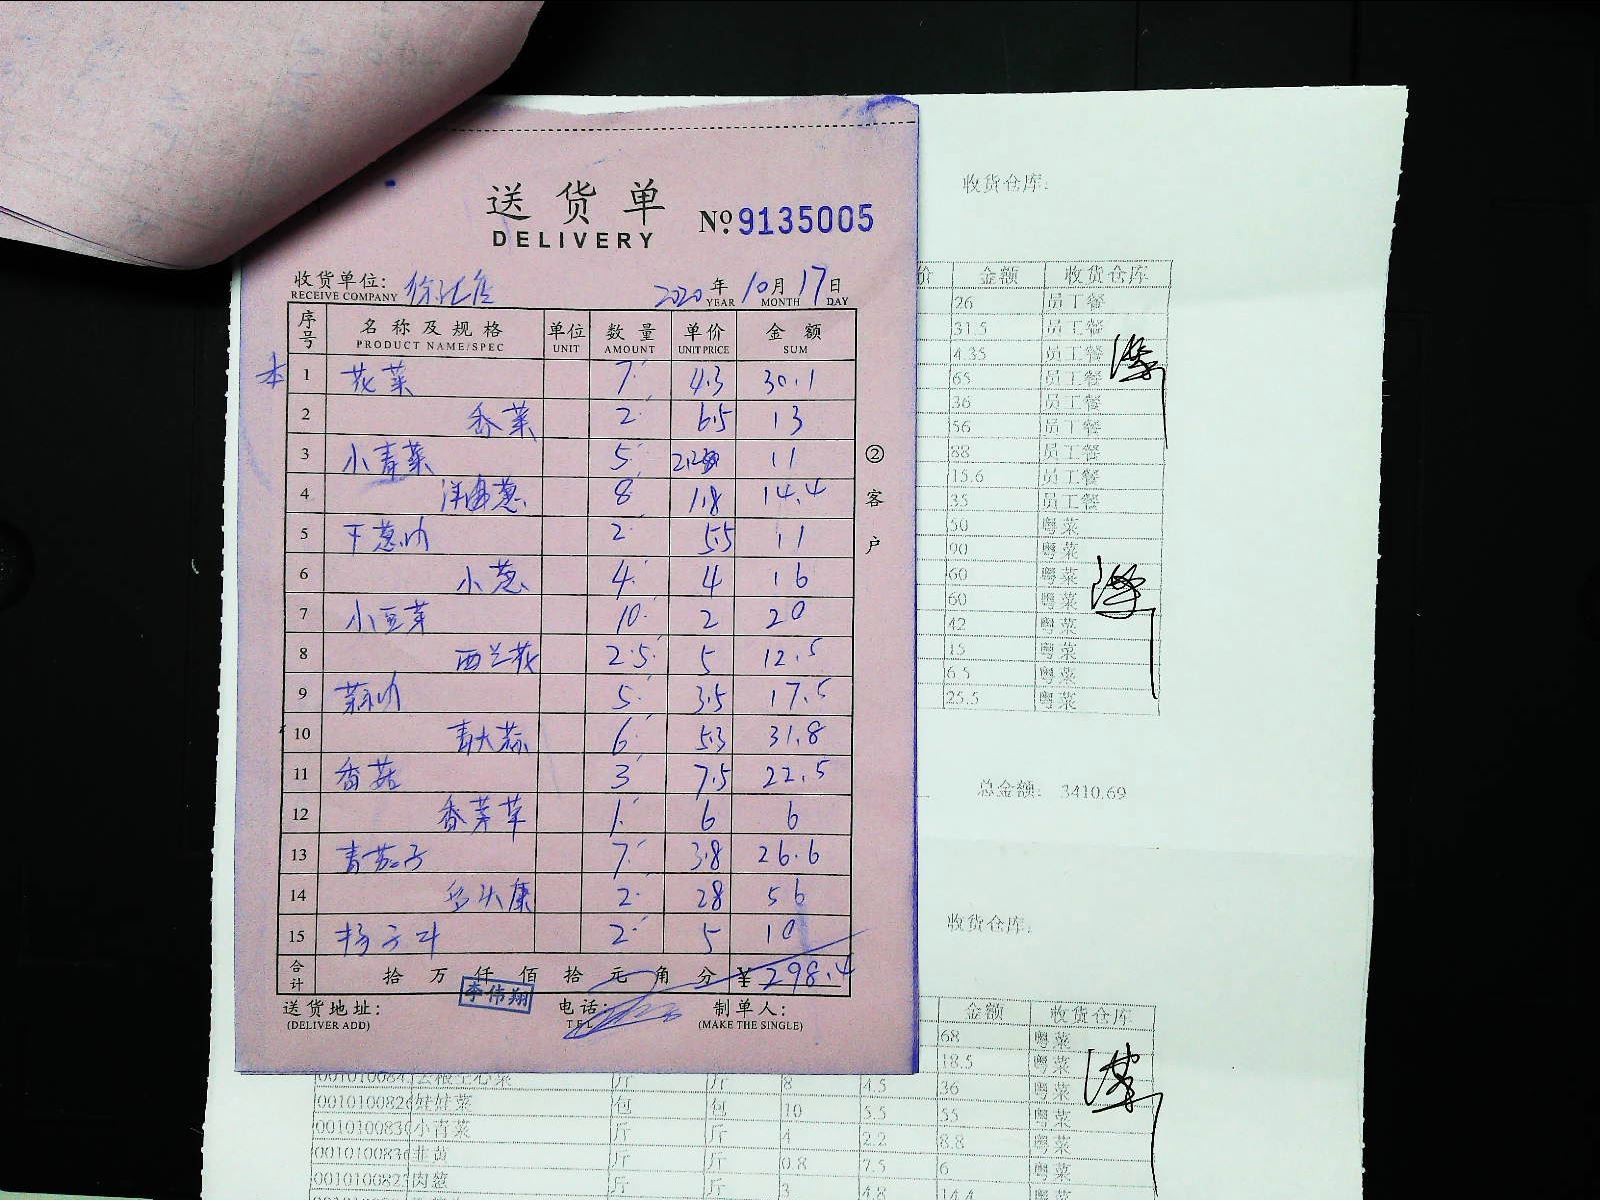 送货单 №9135005
DELIVERY
收货单位: 徐汇店 2020年10月17日
RECEIVE COMPANY YEAR MONTH DAY
序号 名称及规格 单位 数量 单价 金额
PRODUCT NAME/SPEC UNIT AMOUNT UNIT PRICE SUM
本 1 花菜 7 4.3 30.1
2 香菜 2 6.5 13
3 小青菜 5 2.2 11
4 洋葱 8 1.8 14.4
5 干葱 2 5.5 11
6 小葱 4 4 16
7 小豆芽 10 2 20
8 西兰花 2.5 5 12.5
9 5 3.5 17.5
10 青大蒜 6 5.3 31.8
11 香菇 3 7.5 22.5
12 香芹草 1 6 6
13 青茄子 7 3.8 26.6
14 2 28 56
15 2 5 10
合计 拾 万 仟 佰 拾 元 角 分 ¥298.4
李伟翔
送货地址: 电话: 制单人:
(DELIVER ADD) TEL (MAKE THE SINGLE)
② 客户
收货仓库:
价 金额 收货仓库
26 员工餐
31.5 员工餐
4.35 员工餐
65 员工餐
36 员工餐
56 员工餐
88 员工餐
15.6 员工餐
35 员工餐
50 粤菜
90 粤菜
60 粤菜
60 粤菜
42 粤菜
15 粤菜
6.5 粤菜
25.5 粤菜
总金额: 3410.69
收货仓库:
金额 收货仓库
68 粤菜
18.5 粤菜
空心菜 斤 斤 8 4.5 36 粤菜
娃娃菜 包 包 10 5.5 55 粤菜
小青菜 斤 斤 4 2.2 8.8 粤菜
韭黄 斤 斤 0.8 7.5 6 粤菜
肉葱 斤 斤 3 4.8 14.4 粤菜